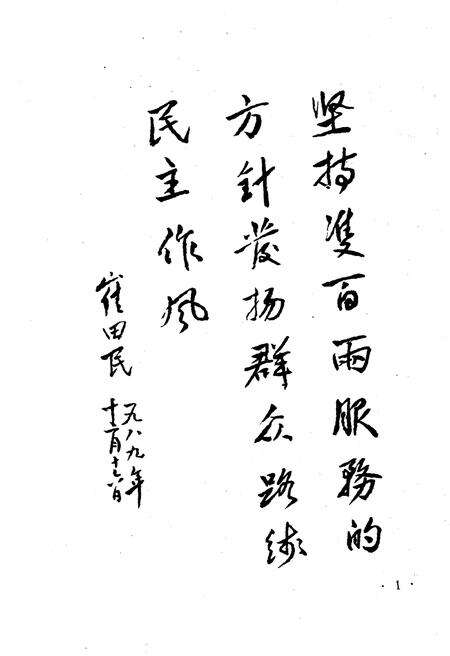 坚持雙百兩服務的
方針發扬群众路线
民主作风
崔田民
一九八九年
十二月十六日
· 1 ·